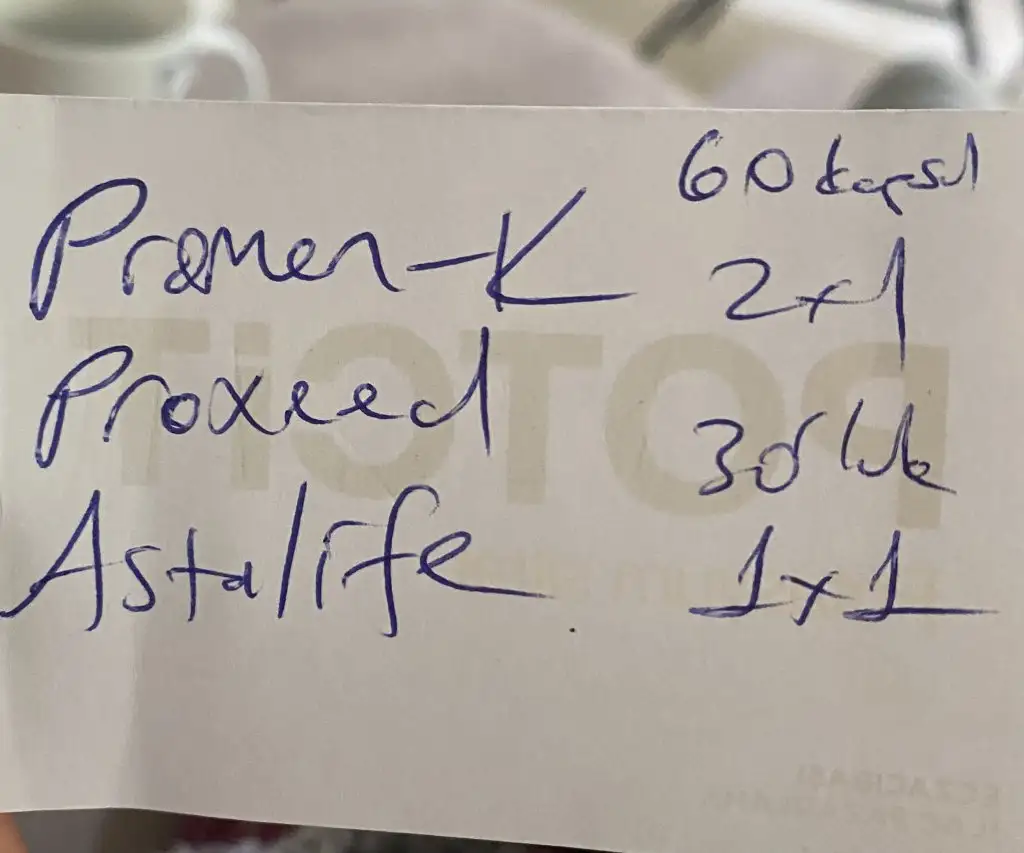 60 kapsül
Promen-K 2x1
Proxeed
30'luk
Astalife 1x1